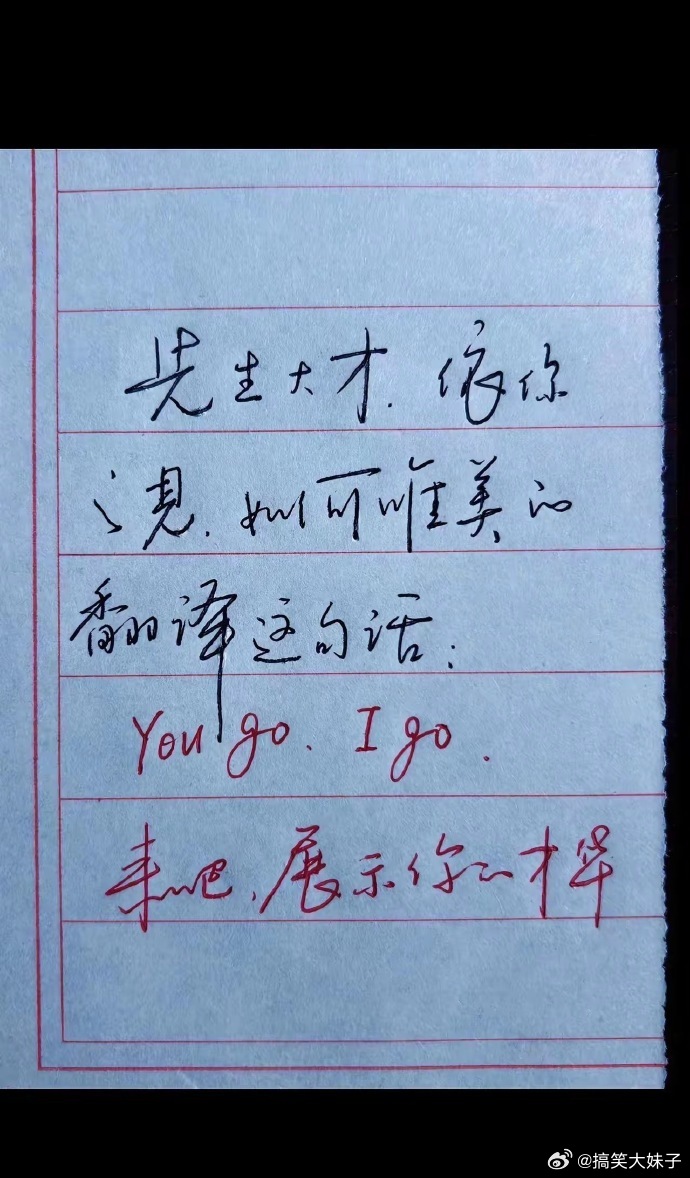 先生大才.依你
之見.如何唯美的
翻译这句话:
You go. I go.
来吧.展示你的才华
@搞笑大妹子